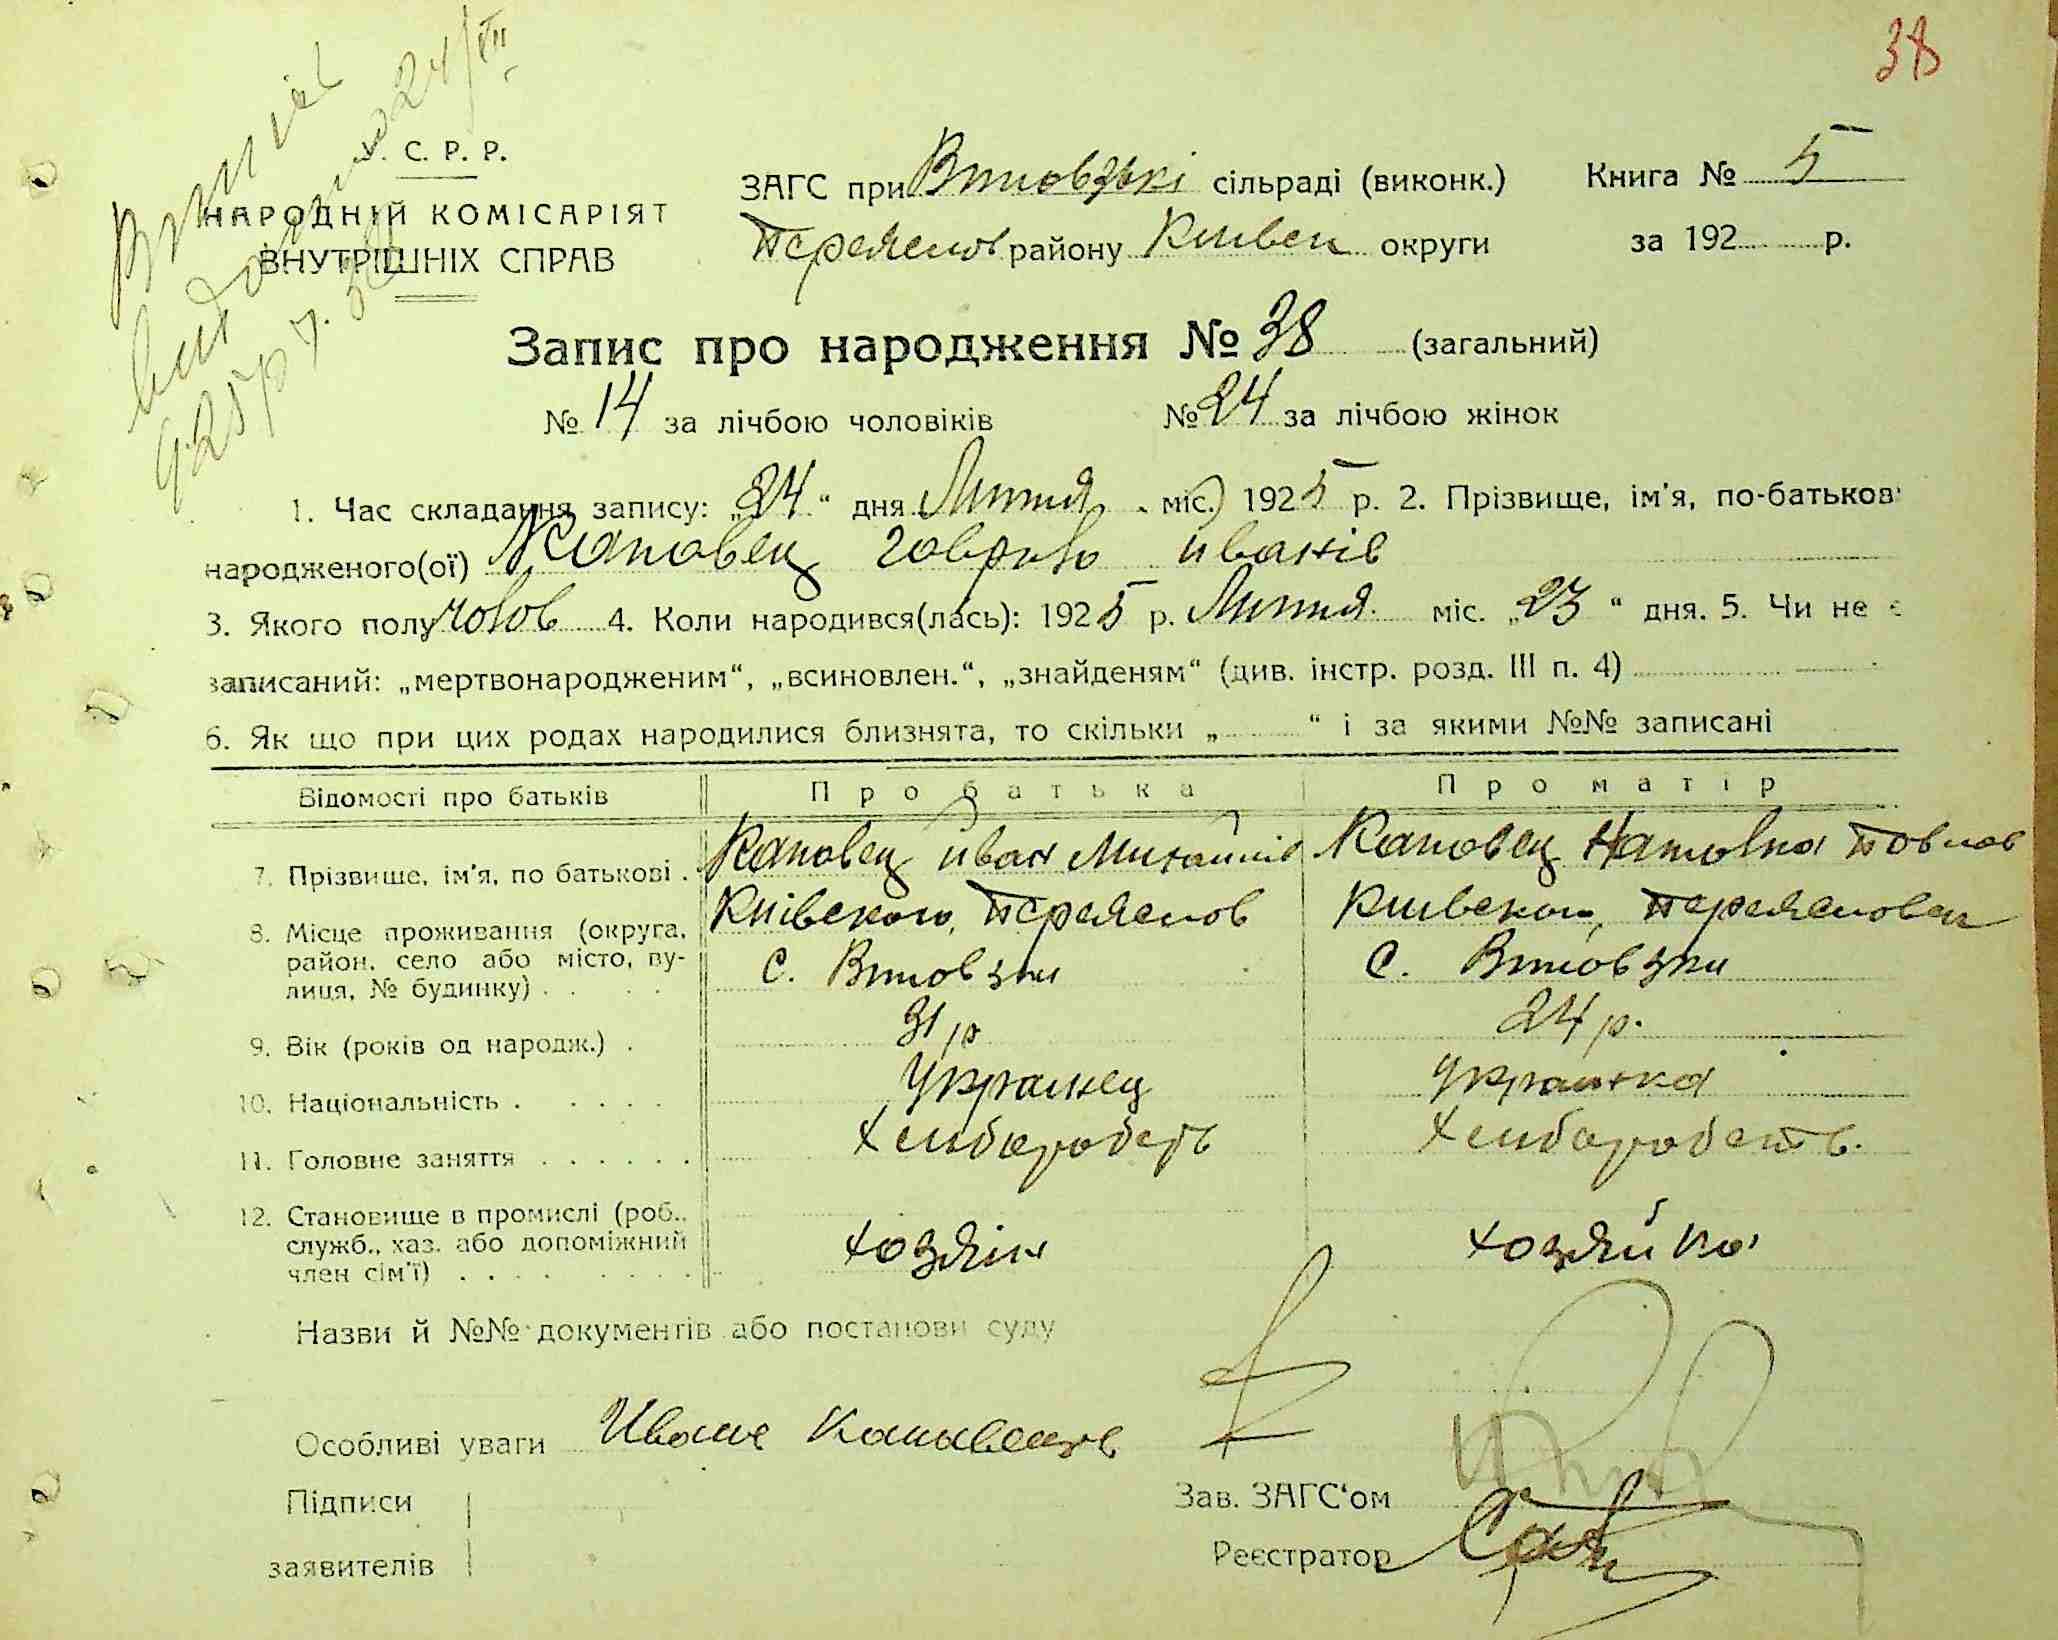 38
У. С. Р. Р.
НАРОДНІЙ КОМІСАРІЯТ
ВНУТРІШНІХ СПРАВ
ЗАГС при Вітовзькі сільраді (виконк.) Книга № 5
Переяслов району Киівск округи за 192 р.
Запис про народження № 38 (загальний)
№ 14 за лічбою чоловіків № 24 за лічбою жінок
1. Час складання запису: „24“ дня Липня міс. 1925 р. 2. Прізвище, ім'я, по-батьков
народженого(ої) Каповец Гаврило иванів
3. Якого полу чолов 4. Коли народився(лась): 1925 р. Липня міс. „23“ дня. 5. Чи не є
записаний: „мертвонародженим“, „всиновлен.“, „знайденям“ (див. інстр. розд. III п. 4)
6. Як що при цих родах народилися близнята, то скільки „ “ і за якими №№ записані
Відомості про батьків Про батька Про матір
7. Прізвище, ім'я, по батькові . Каповец иван Михайлів Каповец Наталка Повлов
8. Місце проживання (округа, район, село або місто, вулиця, № будинку) . . Киівского, Переяслов Киівского, Переяслов
с. Вітовзки с. Вітовзки
9. Вік (років од народж.) . 31 р 24 р.
10. Національність . . . . . Украинец Украинка
11. Головне заняття . . . . . . Хлиборобств Хлиборобств.
12. Становище в промислі (роб., служб., хаз. або допоміжний член сім'ї) . . . . хозяін хозяйка
Назви й №№ документів або постанови суду
Особливі уваги Иване
Підписи
заявителів
Зав. ЗАГС'ом
Реєстратор